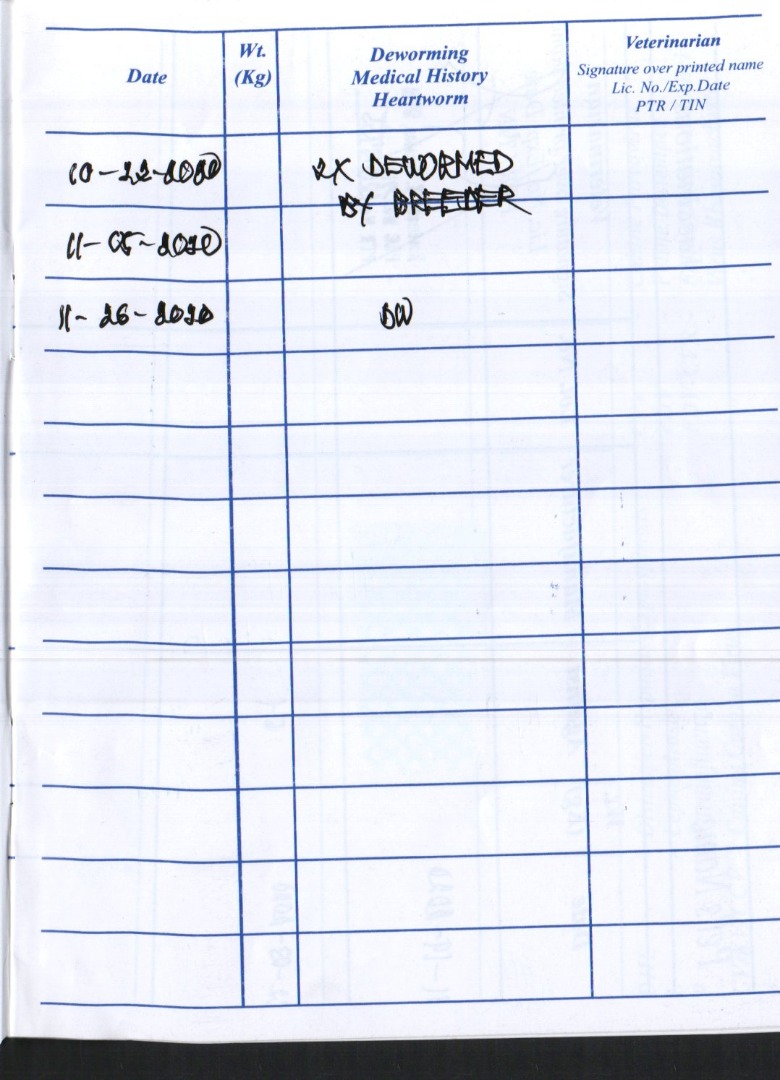 Date
Wt.
(Kg)
Deworming
Medical History
Heartworm
Veterinarian
Signature over printed name
Lic. No./Exp.Date
PTR / TIN
10-22-2020
2X DEWORMED
BY BREEDER
11-05-2020
11-26-2020
DW